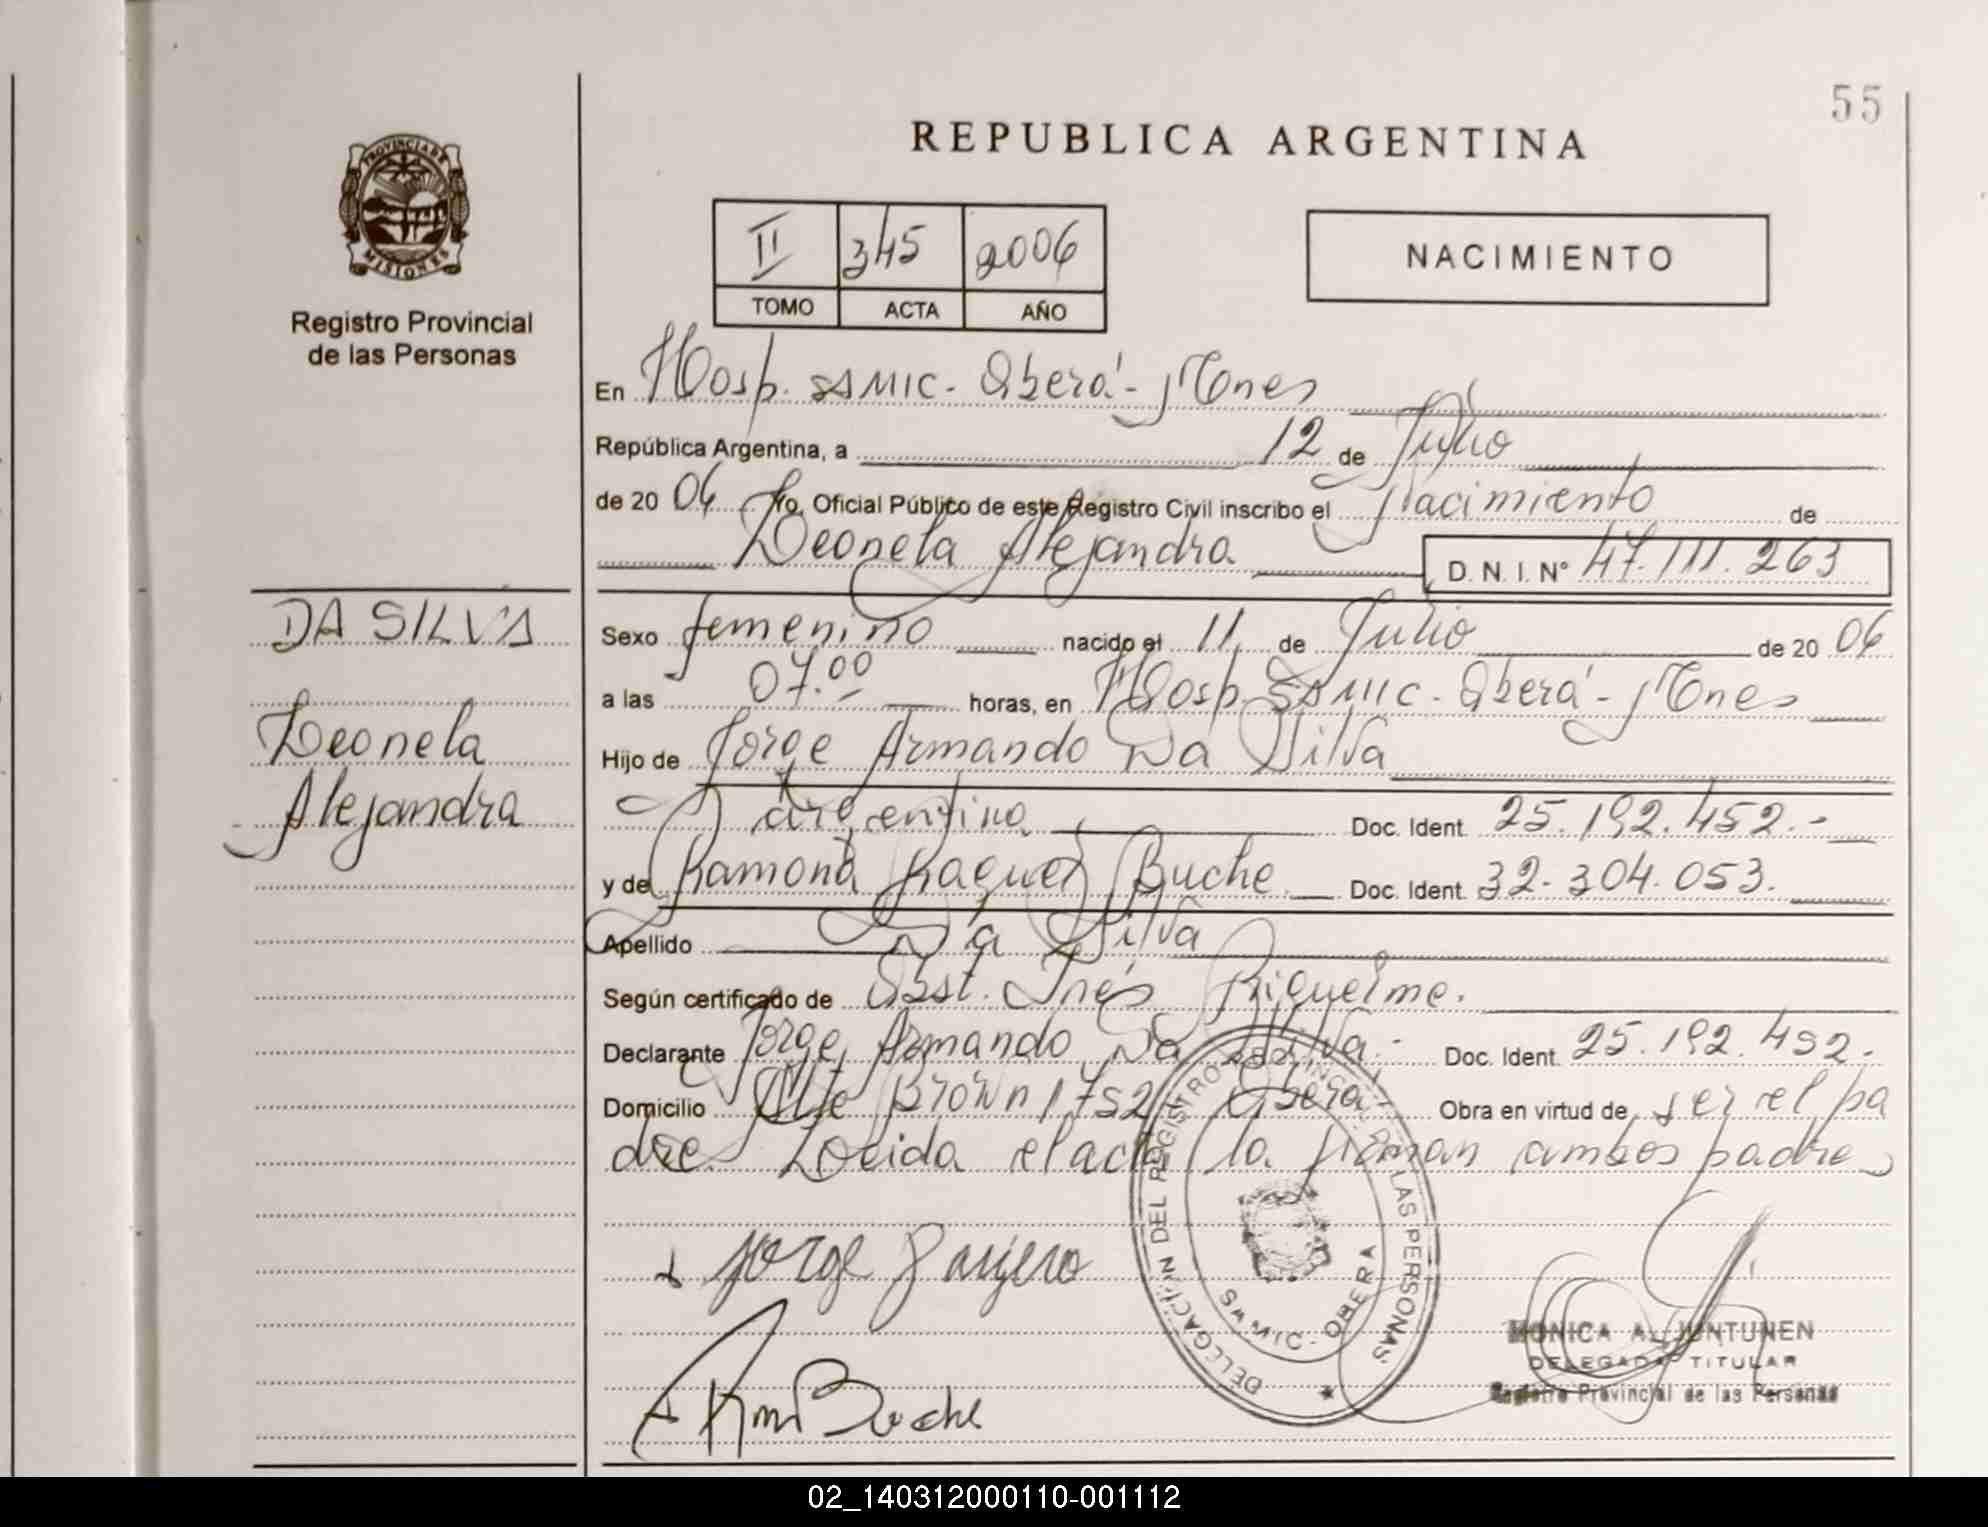 55
REPUBLICA ARGENTINA
PROVINCIA DE MISIONES
Registro Provincial
de las Personas
II 345 2006
TOMO ACTA AÑO
NACIMIENTO
En Hosp. SAMIC - Oberá - Mnes
República Argentina, a 12 de Julio
de 20 06 Yo, Oficial Público de este Registro Civil inscribo el Nacimiento de
Leonela Alejandra D. N. I. Nº 47.111.263
DA SILVA
Leonela
Alejandra
Sexo femenino nacido el 11 de Julio de 20 06
a las 07.00 horas, en Hosp. SAMIC - Oberá - Mnes
Hijo de Jorge Armando Da Silva
argentino Doc. Ident. 25.192.452.-
y de Ramona Raquel Buche Doc. Ident. 32.304.053.
Apellido Da Silva
Según certificado de Obst. Inés Riquelme.
Declarante Jorge Armando Da Silva.- Doc. Ident. 25.192.452.
Domicilio Alte Brown 1752 Oberá- Obra en virtud de ser el pa
dre. Leída el acta la firman ambos padres
Jorge
Buche
DELEGACIÓN DEL REGISTRO PROVINCIAL DE LAS PERSONAS
OBERA
MONICA A. JUNTUNEN
DELEGADA TITULAR
Registro Provincial de las Personas
02_140312000110-001112